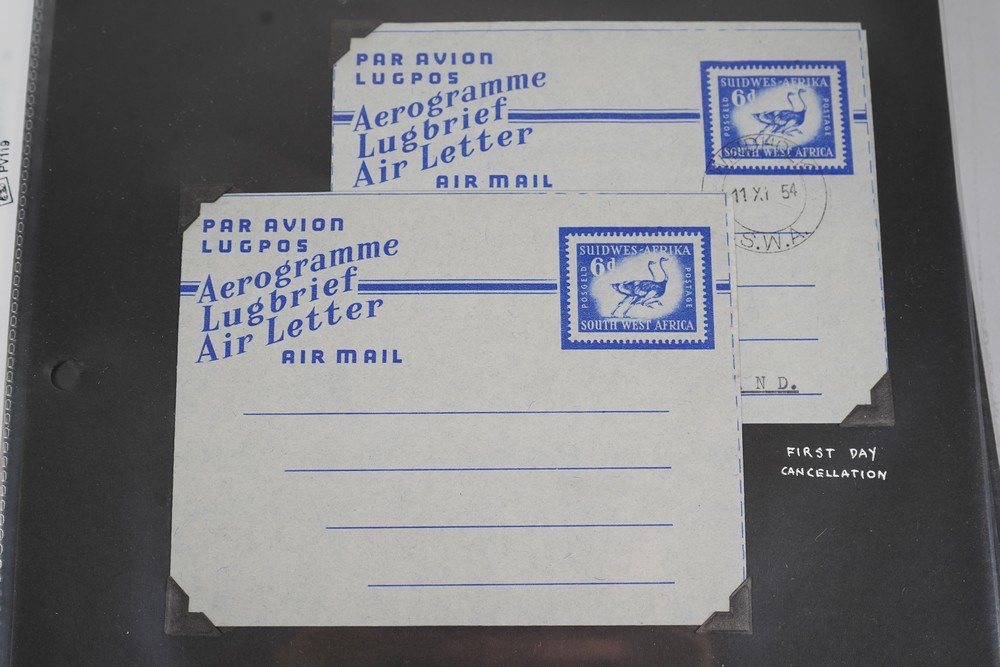 PAR AVION
LUGPOS
Aerogramme
Lugbrief
Air Letter
AIR MAIL
SUIDWES-AFRIKA
6d
POSGELD
POSTAGE
SOUTH WEST AFRICA
11 XI 54
S.W.A.
N D.
PAR AVION
LUGPOS
Aerogramme
Lugbrief
Air Letter
AIR MAIL
SUIDWES-AFRIKA
6d
POSGELD
POSTAGE
SOUTH WEST AFRICA
FIRST DAY
CANCELLATION
PV119